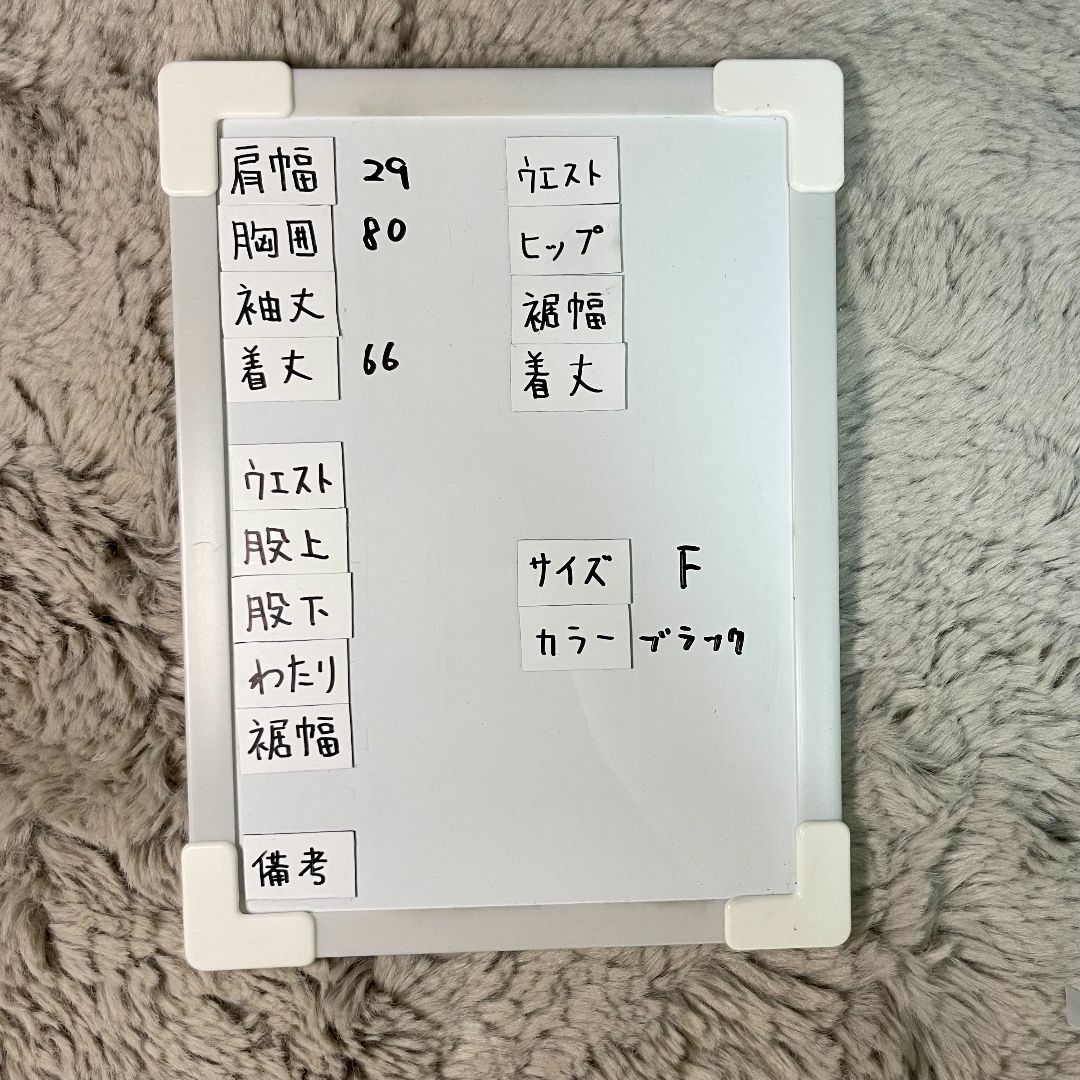 肩幅 29
胸囲 80
袖丈
着丈 66
ウエスト
股上
股下
わたり
裾幅
備考
ウエスト
ヒップ
裾幅
着丈
サイズ F
カラー ブラック